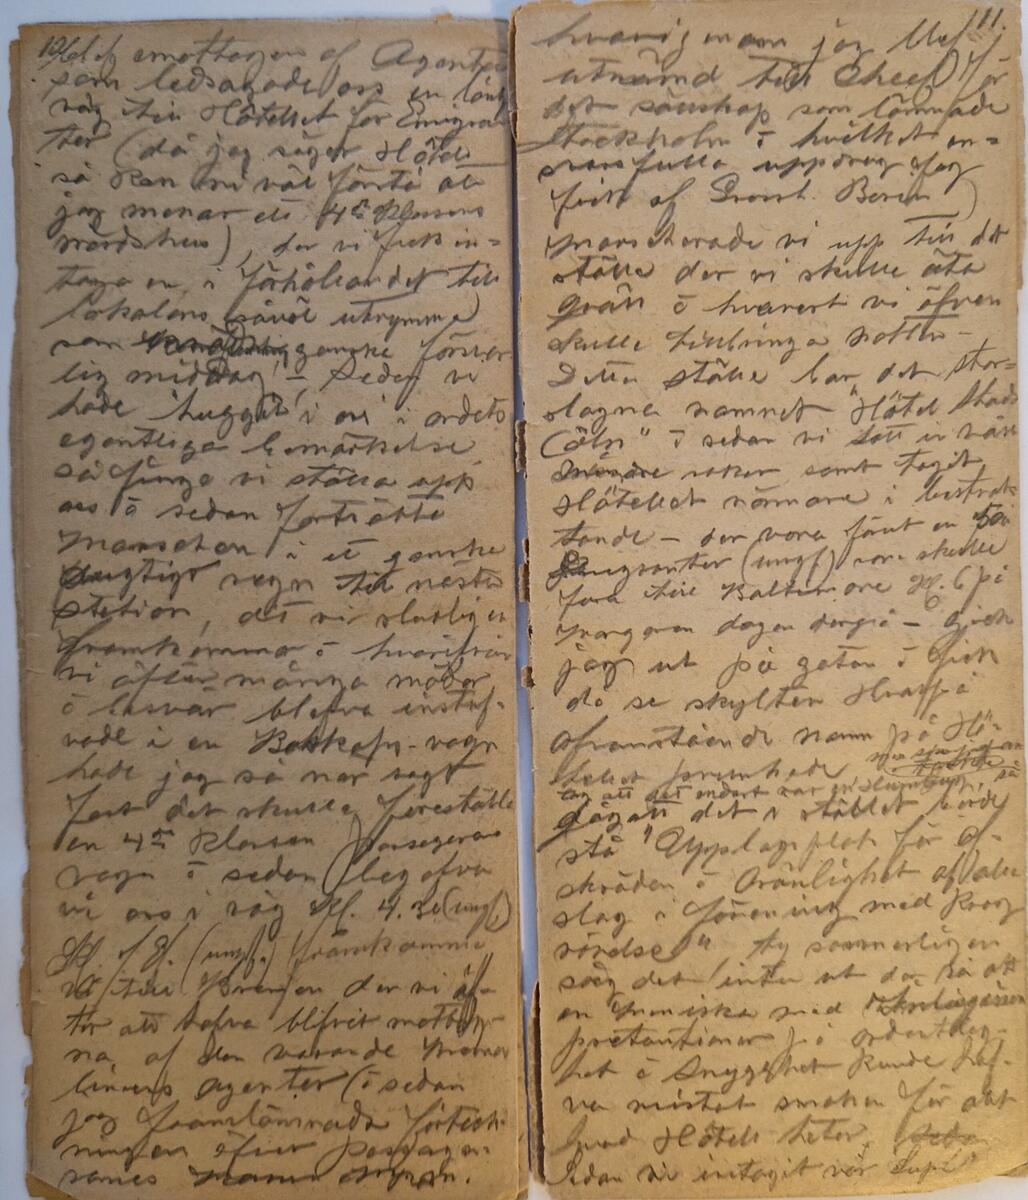 10
blef emottagen af Agenter
som ledsagade oss en lång
väg till Hôtellet för Emigran
ter (då jag säger Hôtel
så kan ni väl förstå att
jag menar ett 4de Klassens
värdshus), der vi fick in=
taga en, i förhållandet till
lokalens såväl utrymme
som ganske förvar
lig middag, – Sedan vi
hade "huggit" i oss i ordets
egentliga bemärkelse
så finge vi ställa upp
oss å sedan fortsätta
Marschen i et ganske
dugtigt regn till nästa
station, dit vi slutligen
framkommo å hvarifrån
vi äfter många mödor
å besvär blefva instuf-
vade i en Boskaps-vagn
hade jag så när sagt
fast det skulle föreställa
en 4de Klassen passagerare
vagn å sedan begåfvo
vi oss i väg Kl. 4.30 (ungf.)
Kl. (ungf.) framkommo
vi till Bremen der vi äf
ter att hafva blifvit mottag-
na af den varande
liniens agenter (å sedan
jag framlämnade förteck-
ningen öfver passagera-
rarnes namn
111.
hvarigenom jag blef
utnämd till Cheef för
det sällskap som lämnade
Stockholm å hvilket an=
svarsfulla uppdrag jag
fick af Grossh.
Marscherade vi upp till det
ställe der vi skulle äta
qväll å hvarest vi äfven
skulle tillbringa natten –
Detta ställe bar det stor-
slagna namnet "Hôtel Stadt
Cöln" å sedan vi satt in våra
saker samt tagit
Hôtellet närmare i betrak-
tande – der voro förut en 50
Emigranter (ungf) som skulle
fara till Baltimore Kl. 6 på
morgonen dagen derpå – Gick
jag ut på gatan å fick
då se skylten Hvarpå
ofvanstående namn på Hô-
tellet prunkade
tog att det endast var en Humbug, så
det i stället borde
stå "Upplagsplats för af-
skräden å Orenlighet af alla
slag i förening med Krog
rörelse" ty sannerligen
såg det inte ut der så att
en Menniska med
pretentioner på ordentlig-
het å Snygghet kunde haf-
va mistat smaken för allt
hvad Hôtell heter,
Sedan vi intagit vår Supé